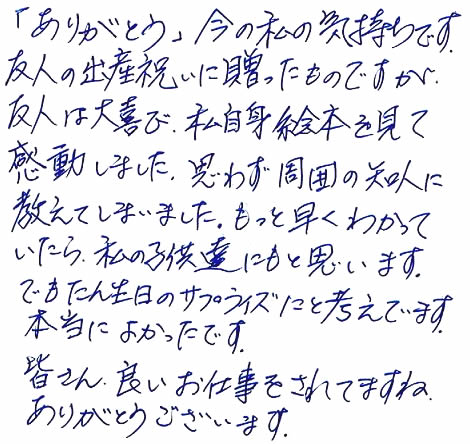 「ありがとう」今の私の気持ちです.
友人の出産祝いに贈ったものですが.
友人は大喜び.私自身絵本を見て
感動しました.思わず周囲の知人に
教えてしまいました。もっと早くわかって
いたら.私の子供達にもと思います.
でもたん生日のサプライズにと考えてます.
本当によかったです.
皆さん.良いお仕事をされてますね.
ありがとうございます.